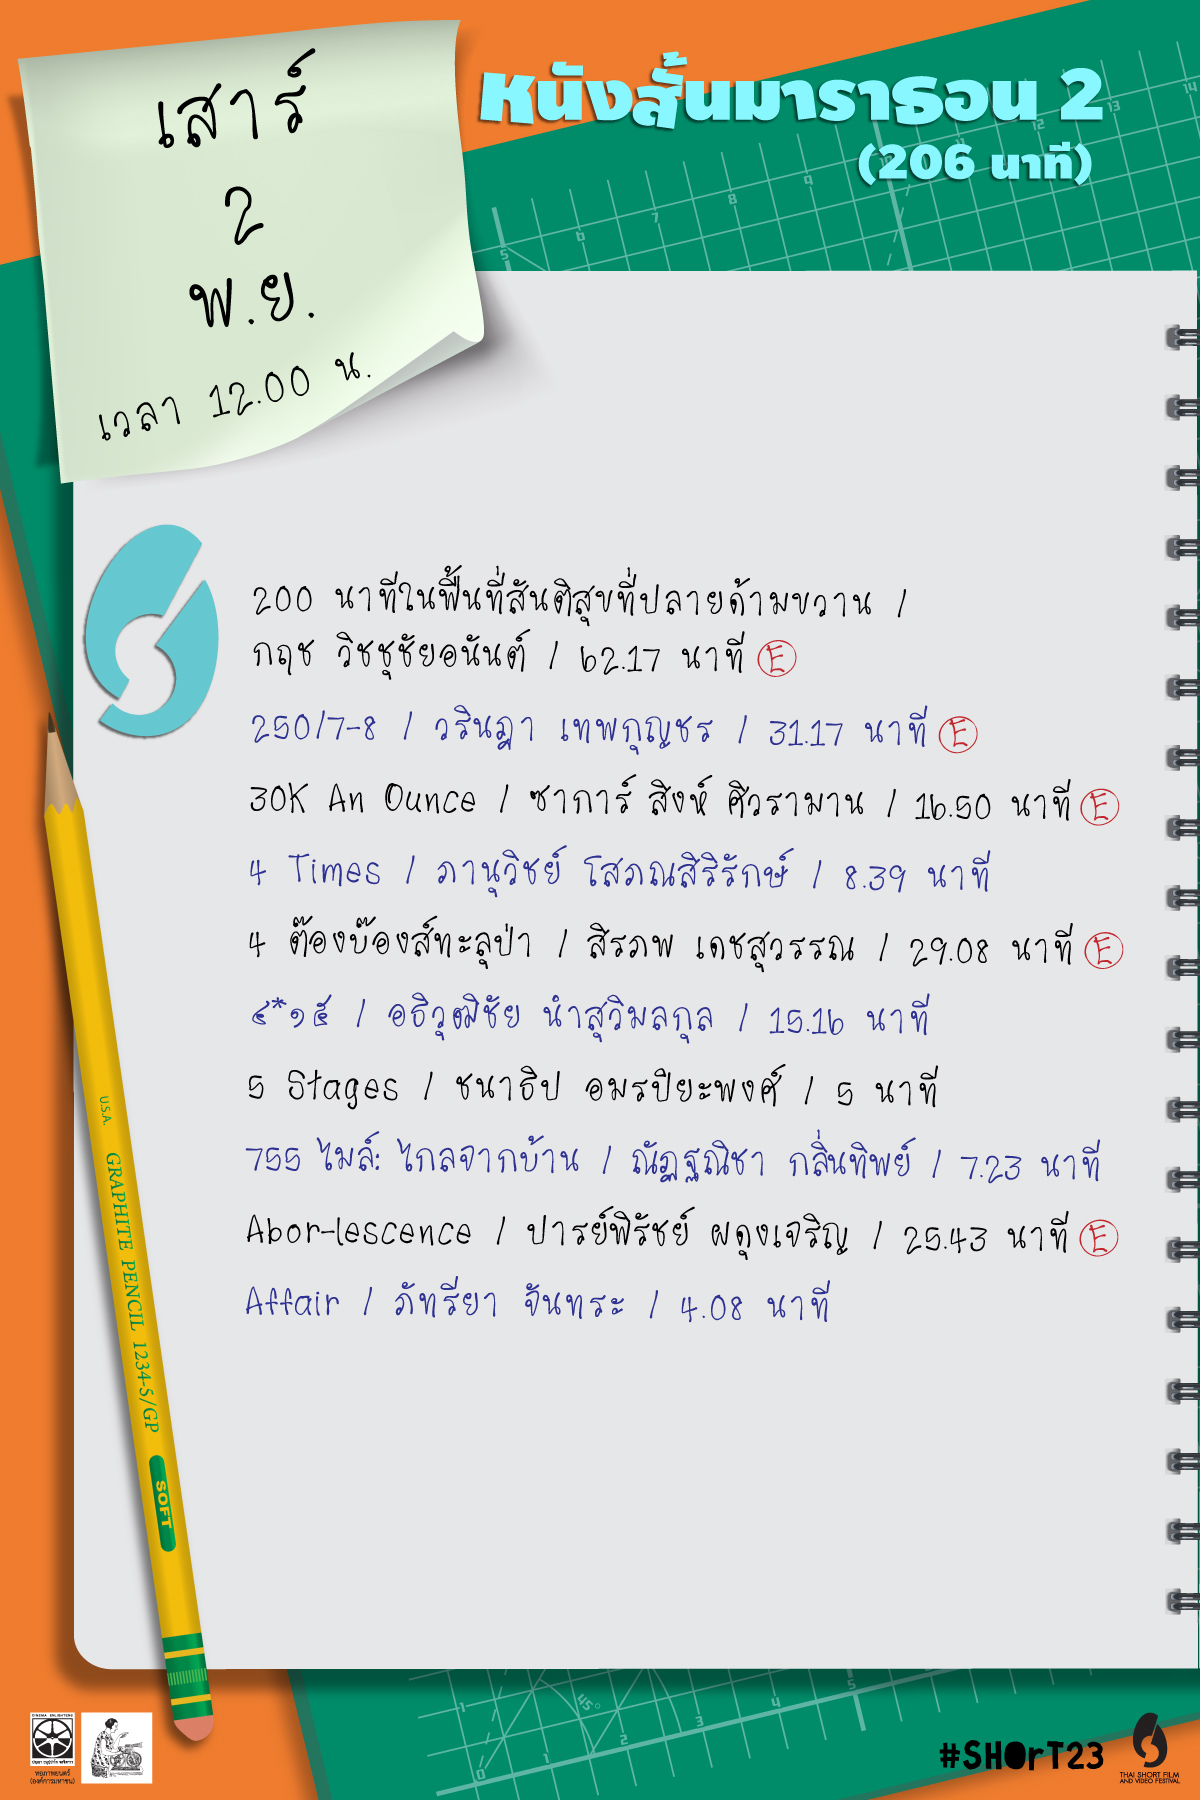 เสาร์
2
พ.ย.
เวลา 12.00 น.
หนังสั้นมาราธอน 2
(206 นาที)
200 นาทีในพื้นที่สันติสุขที่ปลายด้ามขวาน /
กฤช วิชชุชัยอนันต์ / 62.17 นาที E
250/7-8 / วรินฎา เทพกุญชร / 31.17 นาที E
30K An Ounce / ซาการ์ สิงห์ ศิวรามาน / 16.50 นาที E
4 Times / ภานุวิชย์ โสภณสิริรักษ์ / 8.39 นาที
4 ต๊องบ๊องส์ทะลุป่า / สิรภพ เดชสุวรรณ / 29.08 นาที E
๔*๑๕ / อธิวุฒิชัย นำสุวิมลกุล / 15.16 นาที
5 Stages / ชนาธิป อมรปิยะพงศ์ / 5 นาที
755 ไมล์: ไกลจากบ้าน / ณัฏฐณิชา กลิ่นทิพย์ / 7.23 นาที
Abor-lescence / ปารย์พิรัชย์ ผดุงเจริญ / 25.43 นาที E
Affair / ภัทรียา จันทระ / 4.08 นาที
U.S.A. GRAPHITE PENCIL 1234-5/GP
SOFT
หอภาพยนตร์
(องค์การมหาชน)
#SHOrT23
THAI SHORT FILM
AND VIDEO FESTIVAL